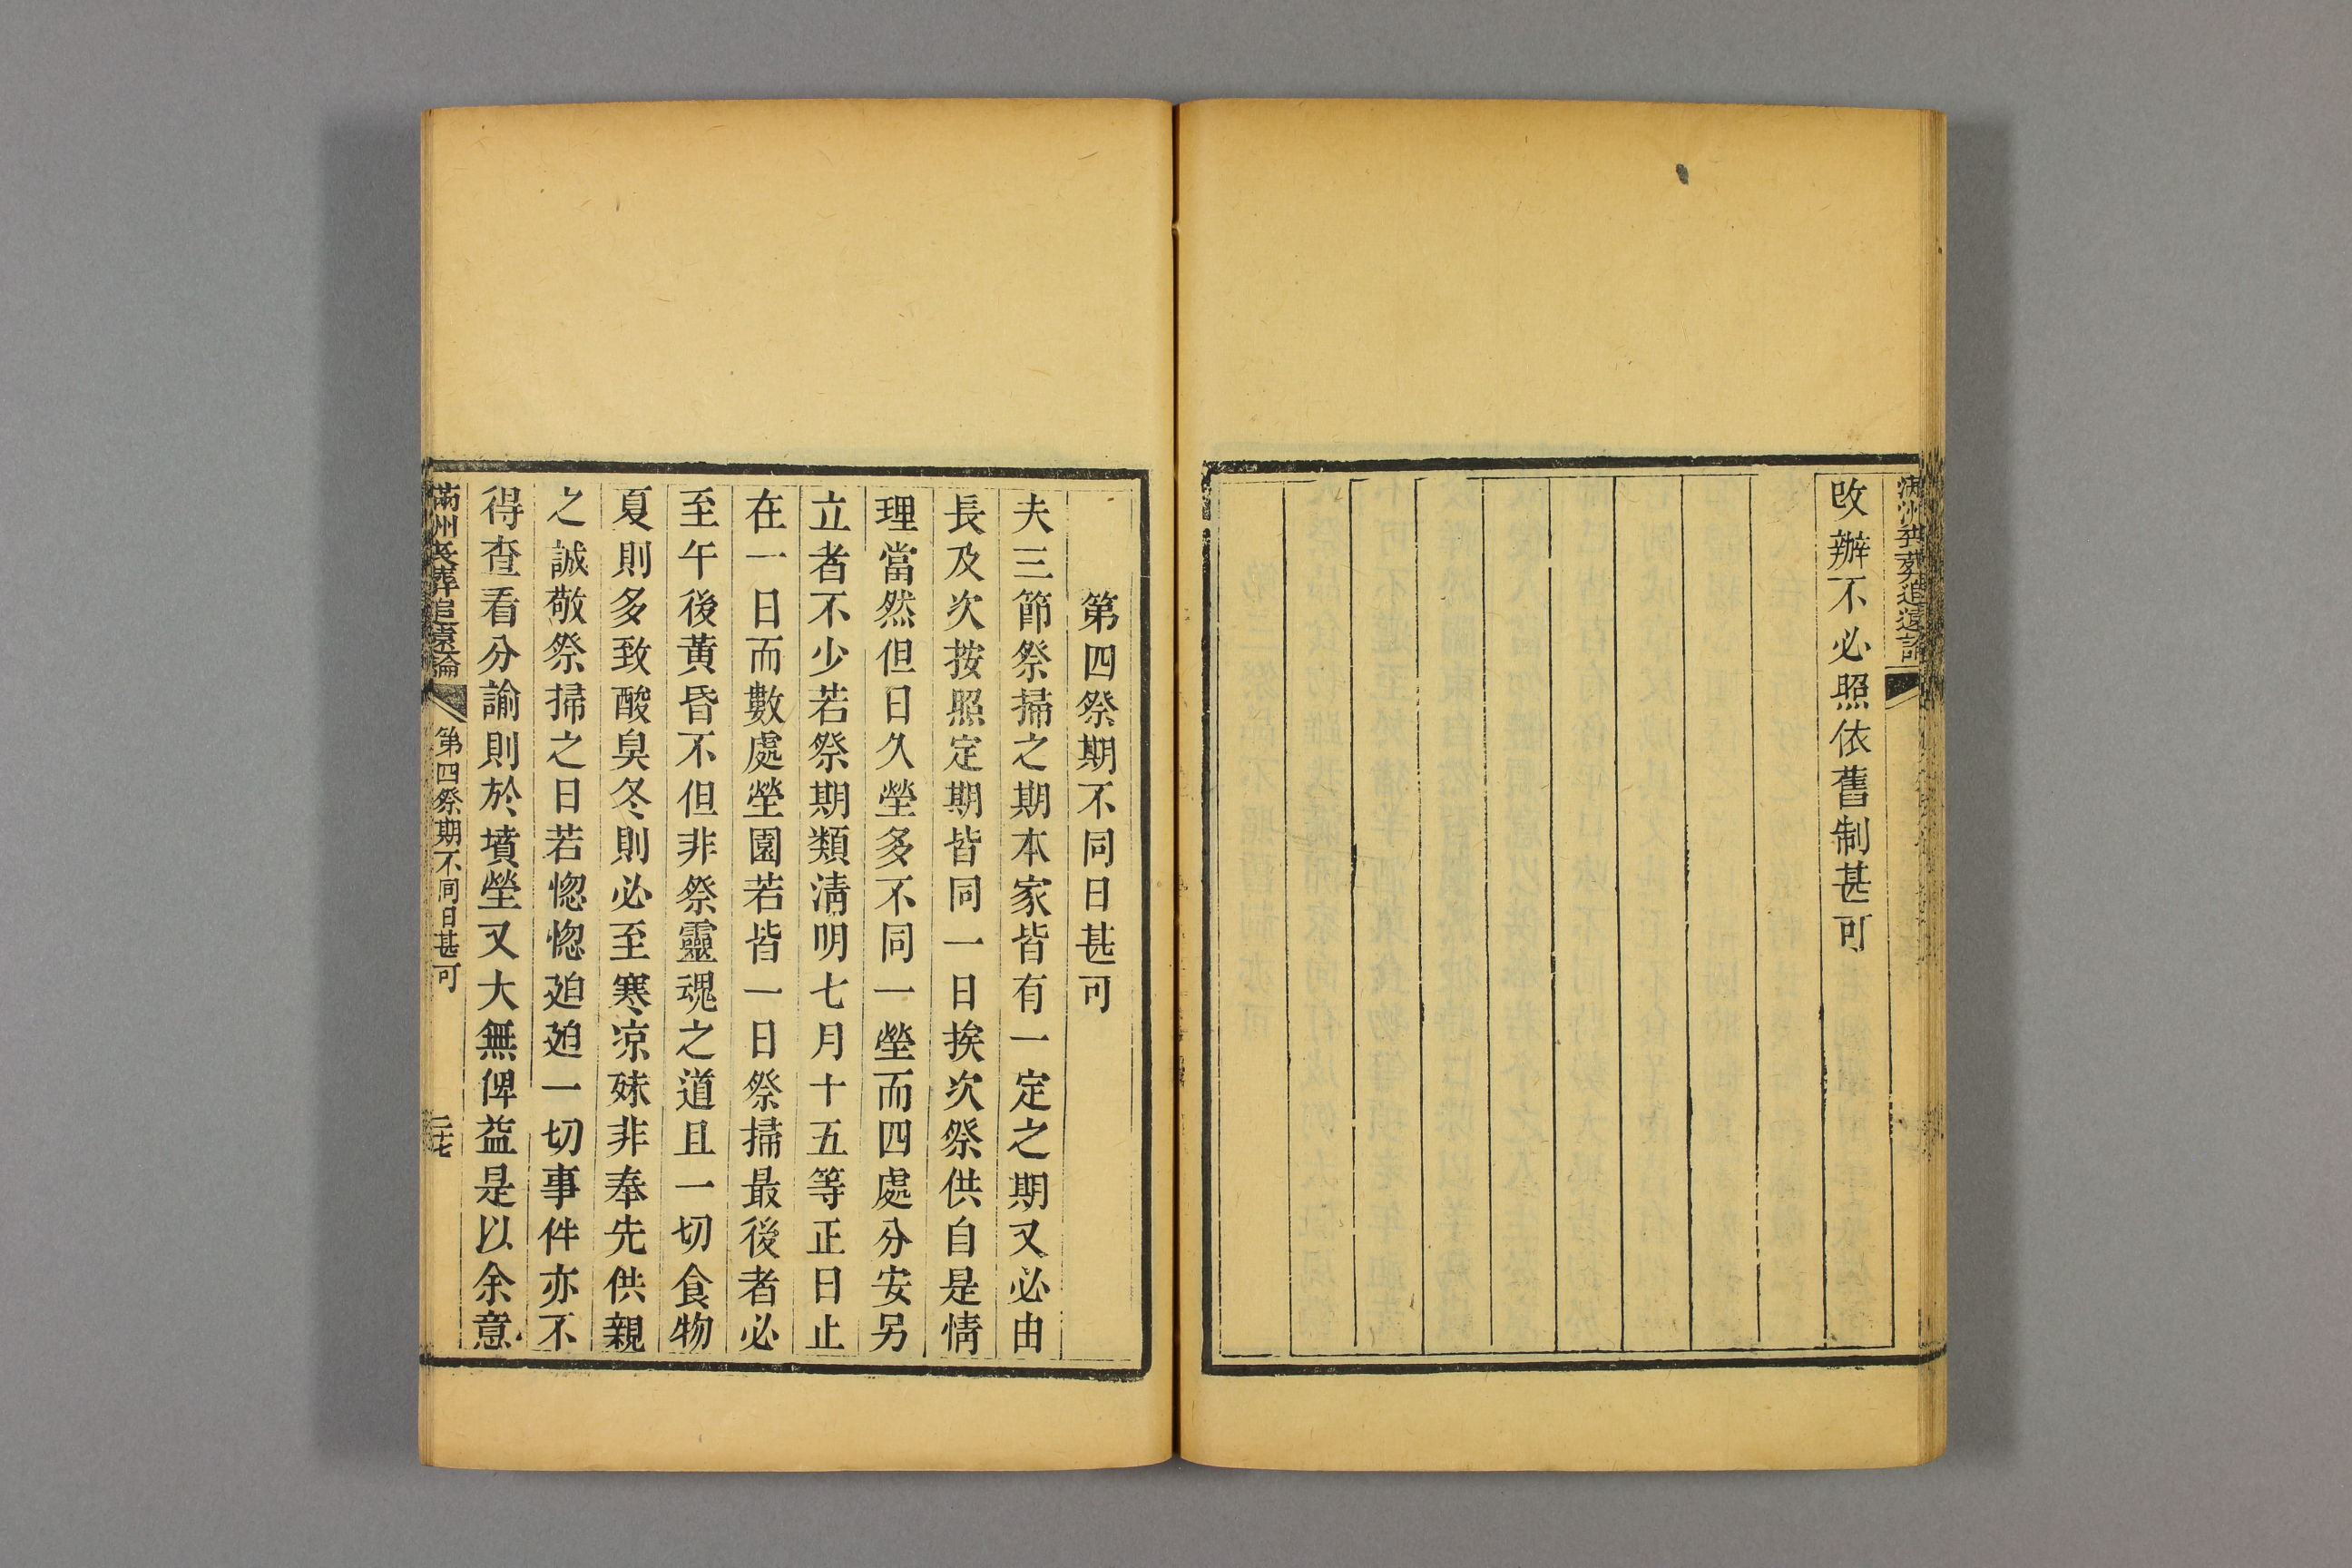 改辦不必照依舊制甚可
第四祭期不同日甚可
夫三節祭掃之期本家皆有一定之期又必由
長及次按照定期皆同一日挨次祭供自是情
理當然但日久塋多不同一塋而四處分安另
立者不少若祭期類清明七月十五等正日止
在一日而數處塋園若皆一日祭掃最後者必
至午後黃昏不但非祭靈魂之道且一切食物
夏則多致酸臭冬則必至寒凉殊非奉先供親
之誠敬祭掃之日若惚惚廹廹一切事件亦不
得查看分諭則於墳塋又大無俾益是以余意
滿州喪葬追遠論
第四祭期不同日甚可